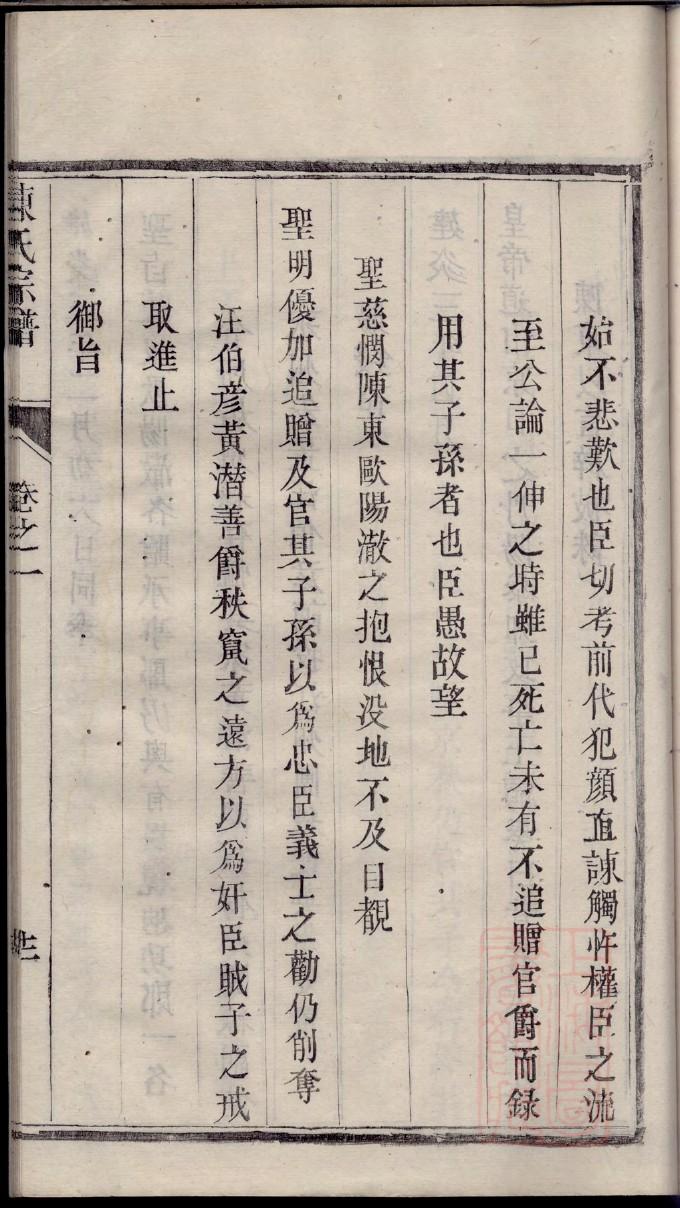 始不悲歎也臣切考前代犯顔直諌觸忤權臣之流
至公論一伸之時雖已死亡未有不追贈官爵而録
用其子孫者也臣愚故望
聖慈憫陳東歐陽澈之抱恨没地不及目覩
聖明優加追贈及官其子孫以爲忠臣義士之勸仍削奪
汪伯彦黃潜善爵秩竄之遠方以爲奸臣賊子之戒
取進止
御旨
陳氏宗譜
卷之一